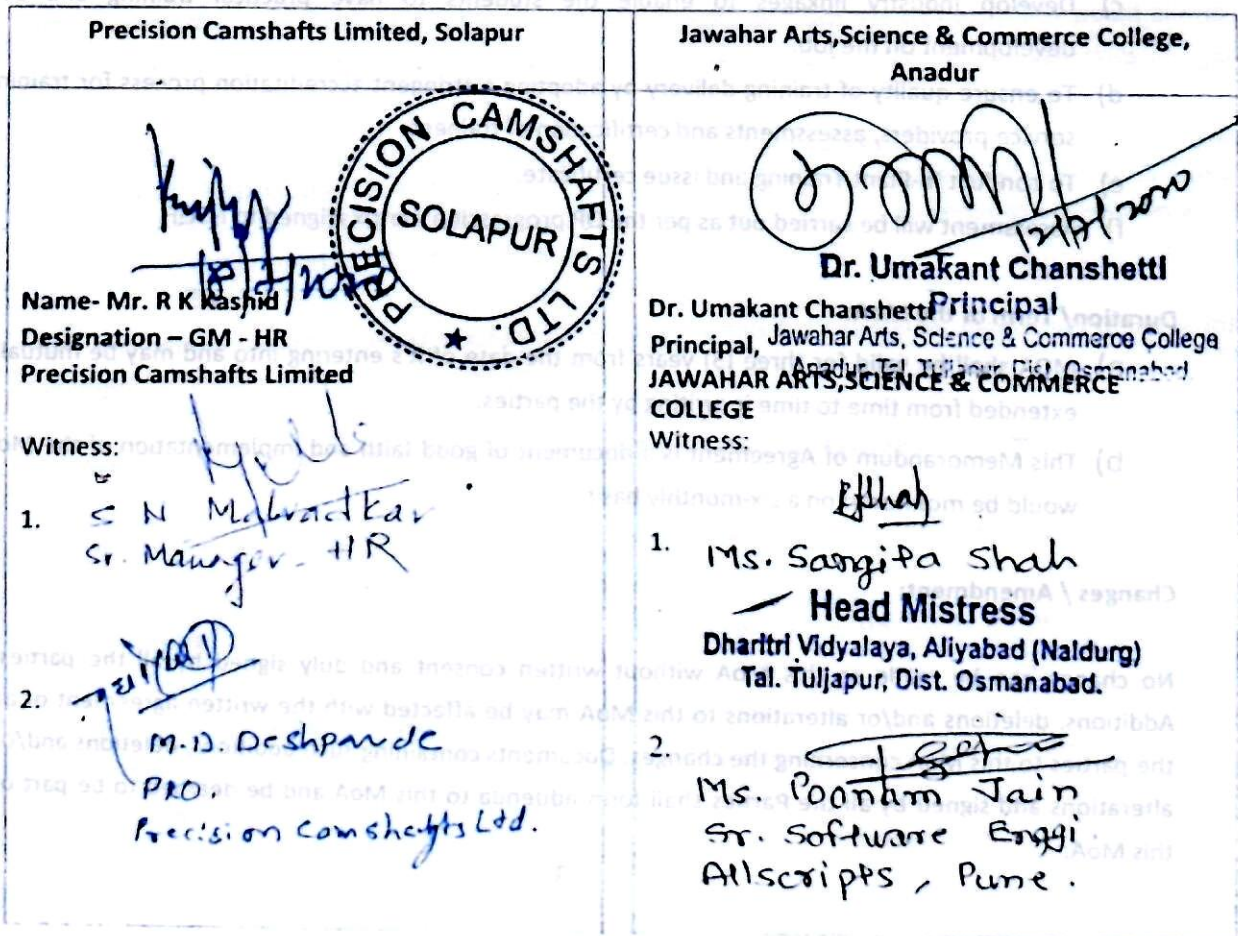 Precision Camshafts Limited, Solapur
PRECISION CAMSHAFTS LTD.
SOLAPUR
Name- Mr. R K Kashid
Designation – GM - HR
Precision Camshafts Limited
Witness:
1. S N Malvadkar
Sr. Manager - HR
2.
M.D. Deshpande
PRO.
Precision Camshafts Ltd.
Jawahar Arts,Science & Commerce College,
Anadur
Dr. Umakant Chanshetti
Principal
Jawahar Arts, Science & Commerce College
Anadur, Tal. Tuljapur, Dist. Osmanabad
Dr. Umakant Chanshetti
Principal,
JAWAHAR ARTS,SCIENCE & COMMERCE
COLLEGE
Witness:
1. Ms. Sangita Shah
Head Mistress
Dharitri Vidyalaya, Aliyabad (Naldurg)
Tal. Tuljapur, Dist. Osmanabad.
2.
Ms. Poonam Jain
Sr. Software Enggi.
Allscripts, Pune.